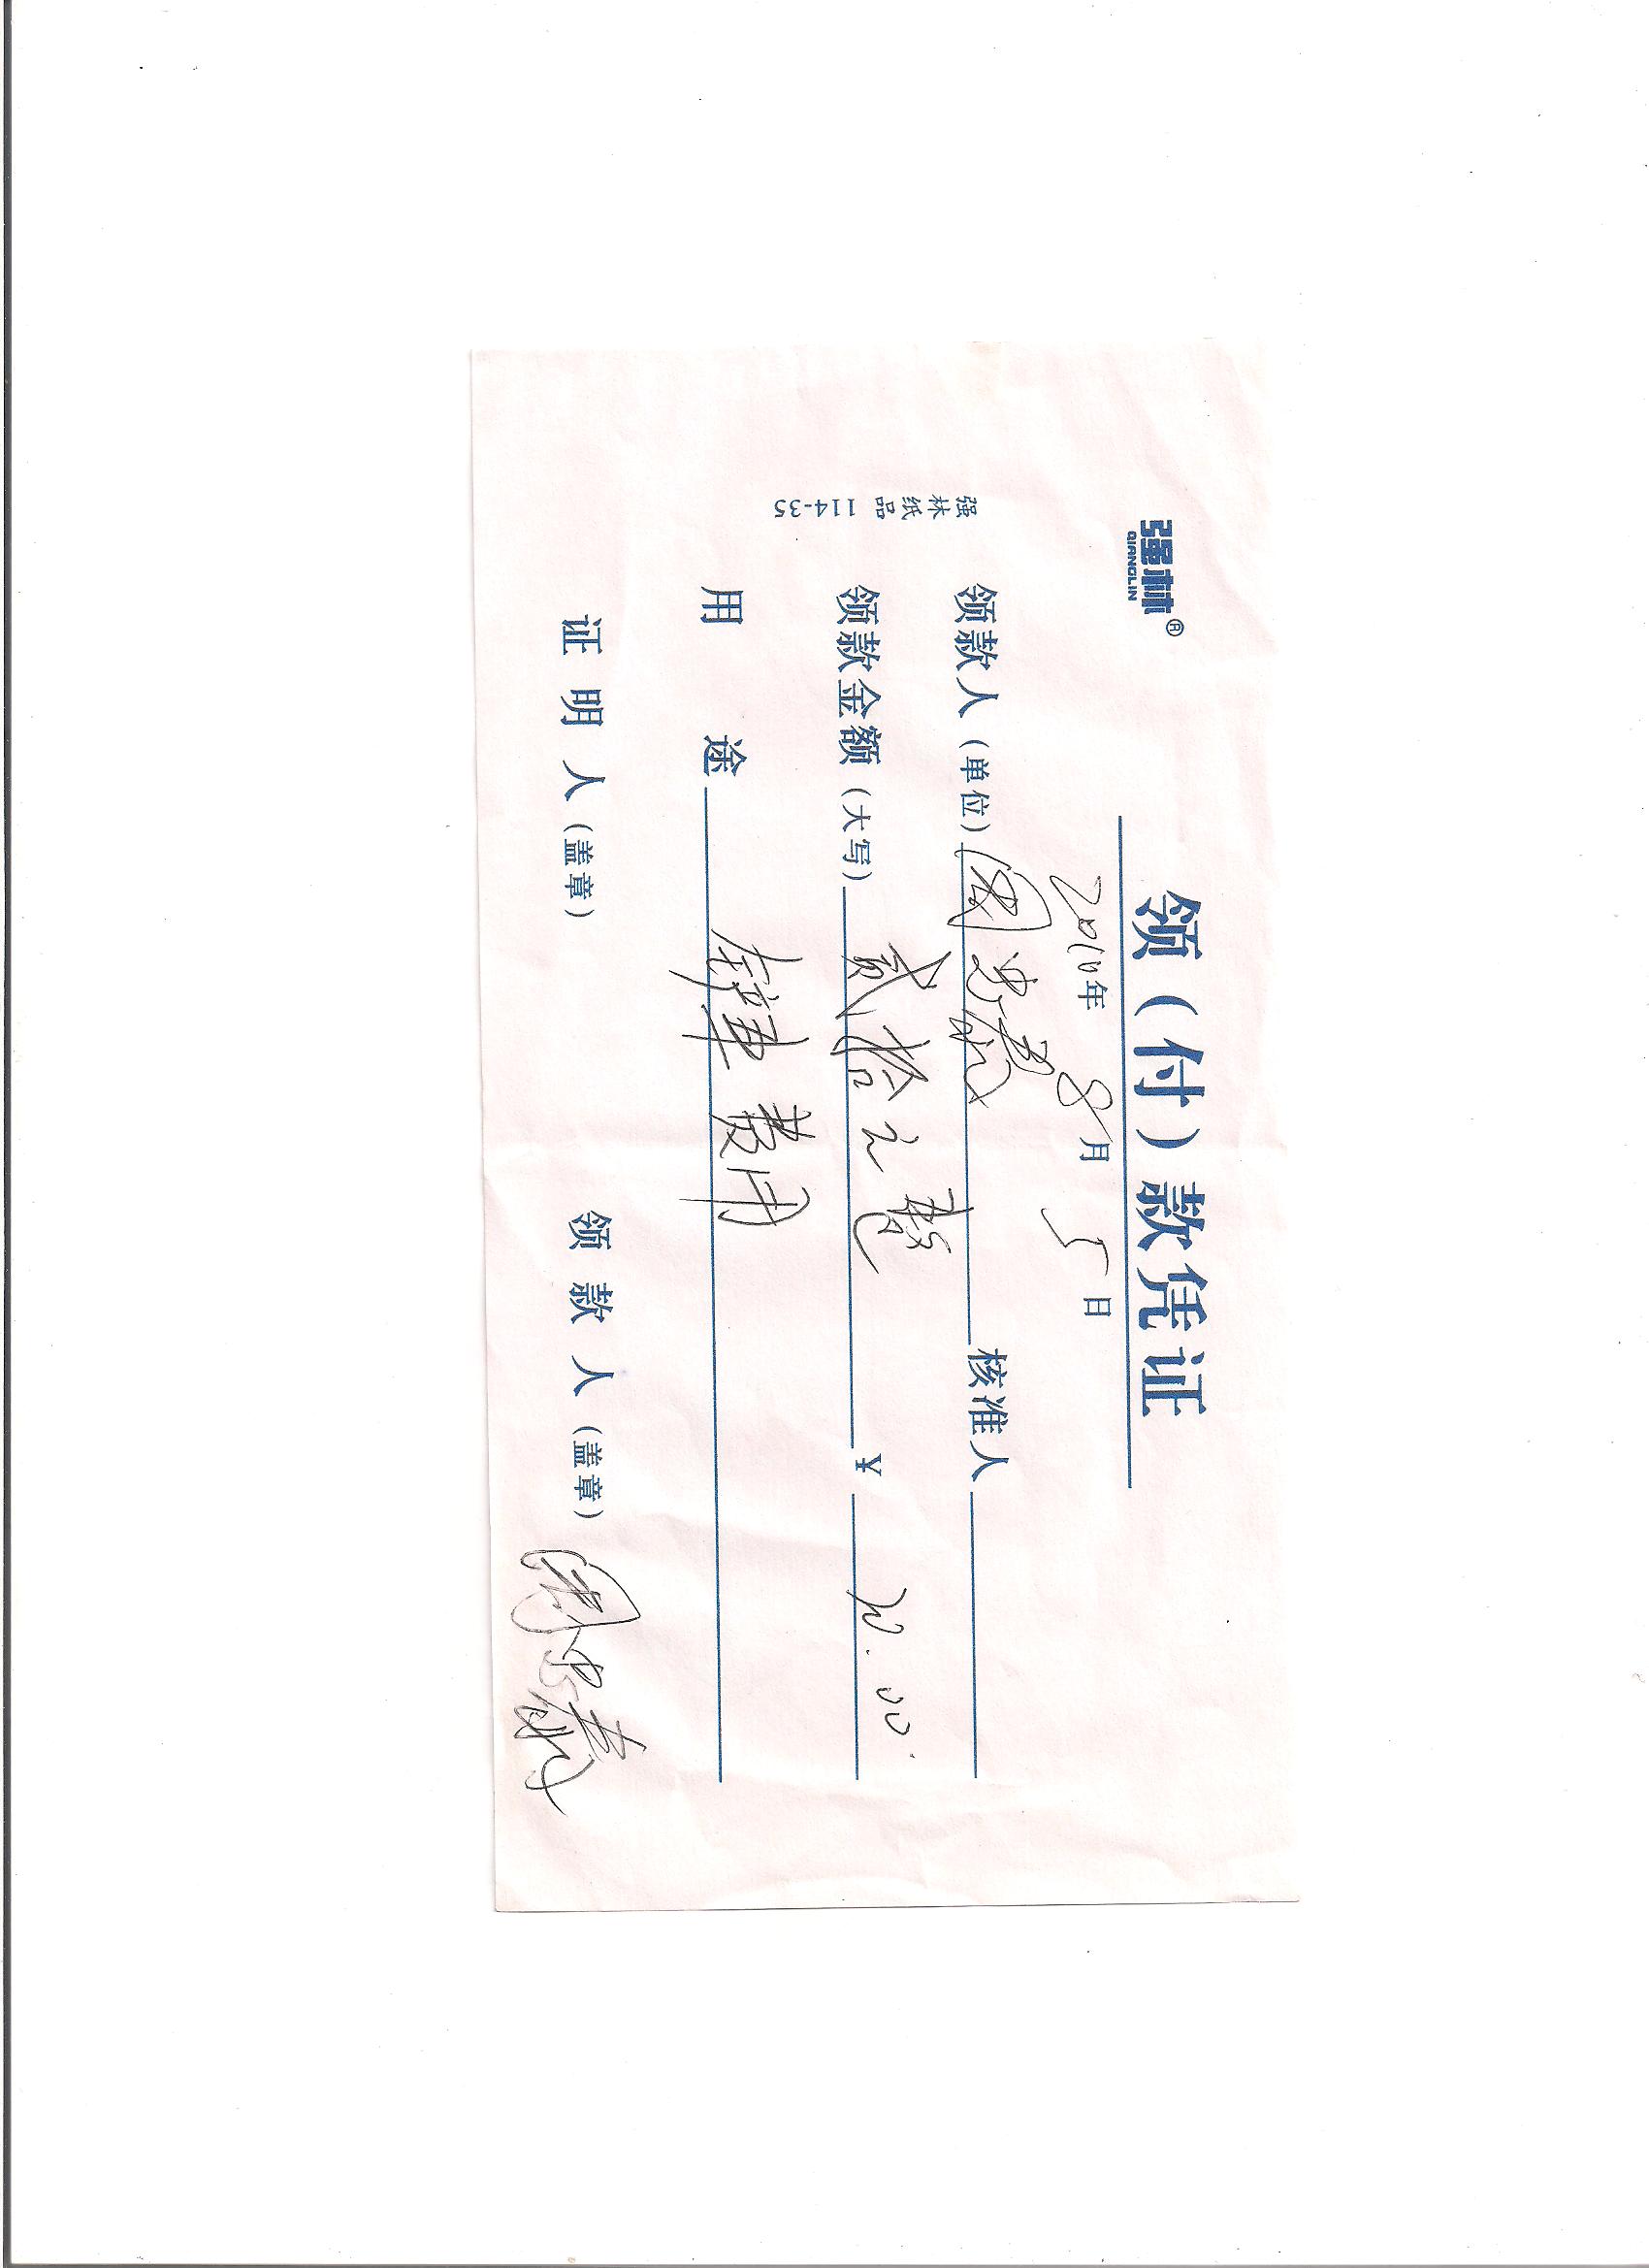 强林®
QIANGLIN
领（付）款凭证
2010年 8月 5日
领款人（单位） 周忠义 核准人
领款金额（大写） 贰拾元整 ¥ 20.00
用途 费用
证明人（盖章） 领款人（盖章） 周忠义
强林纸品 114-35